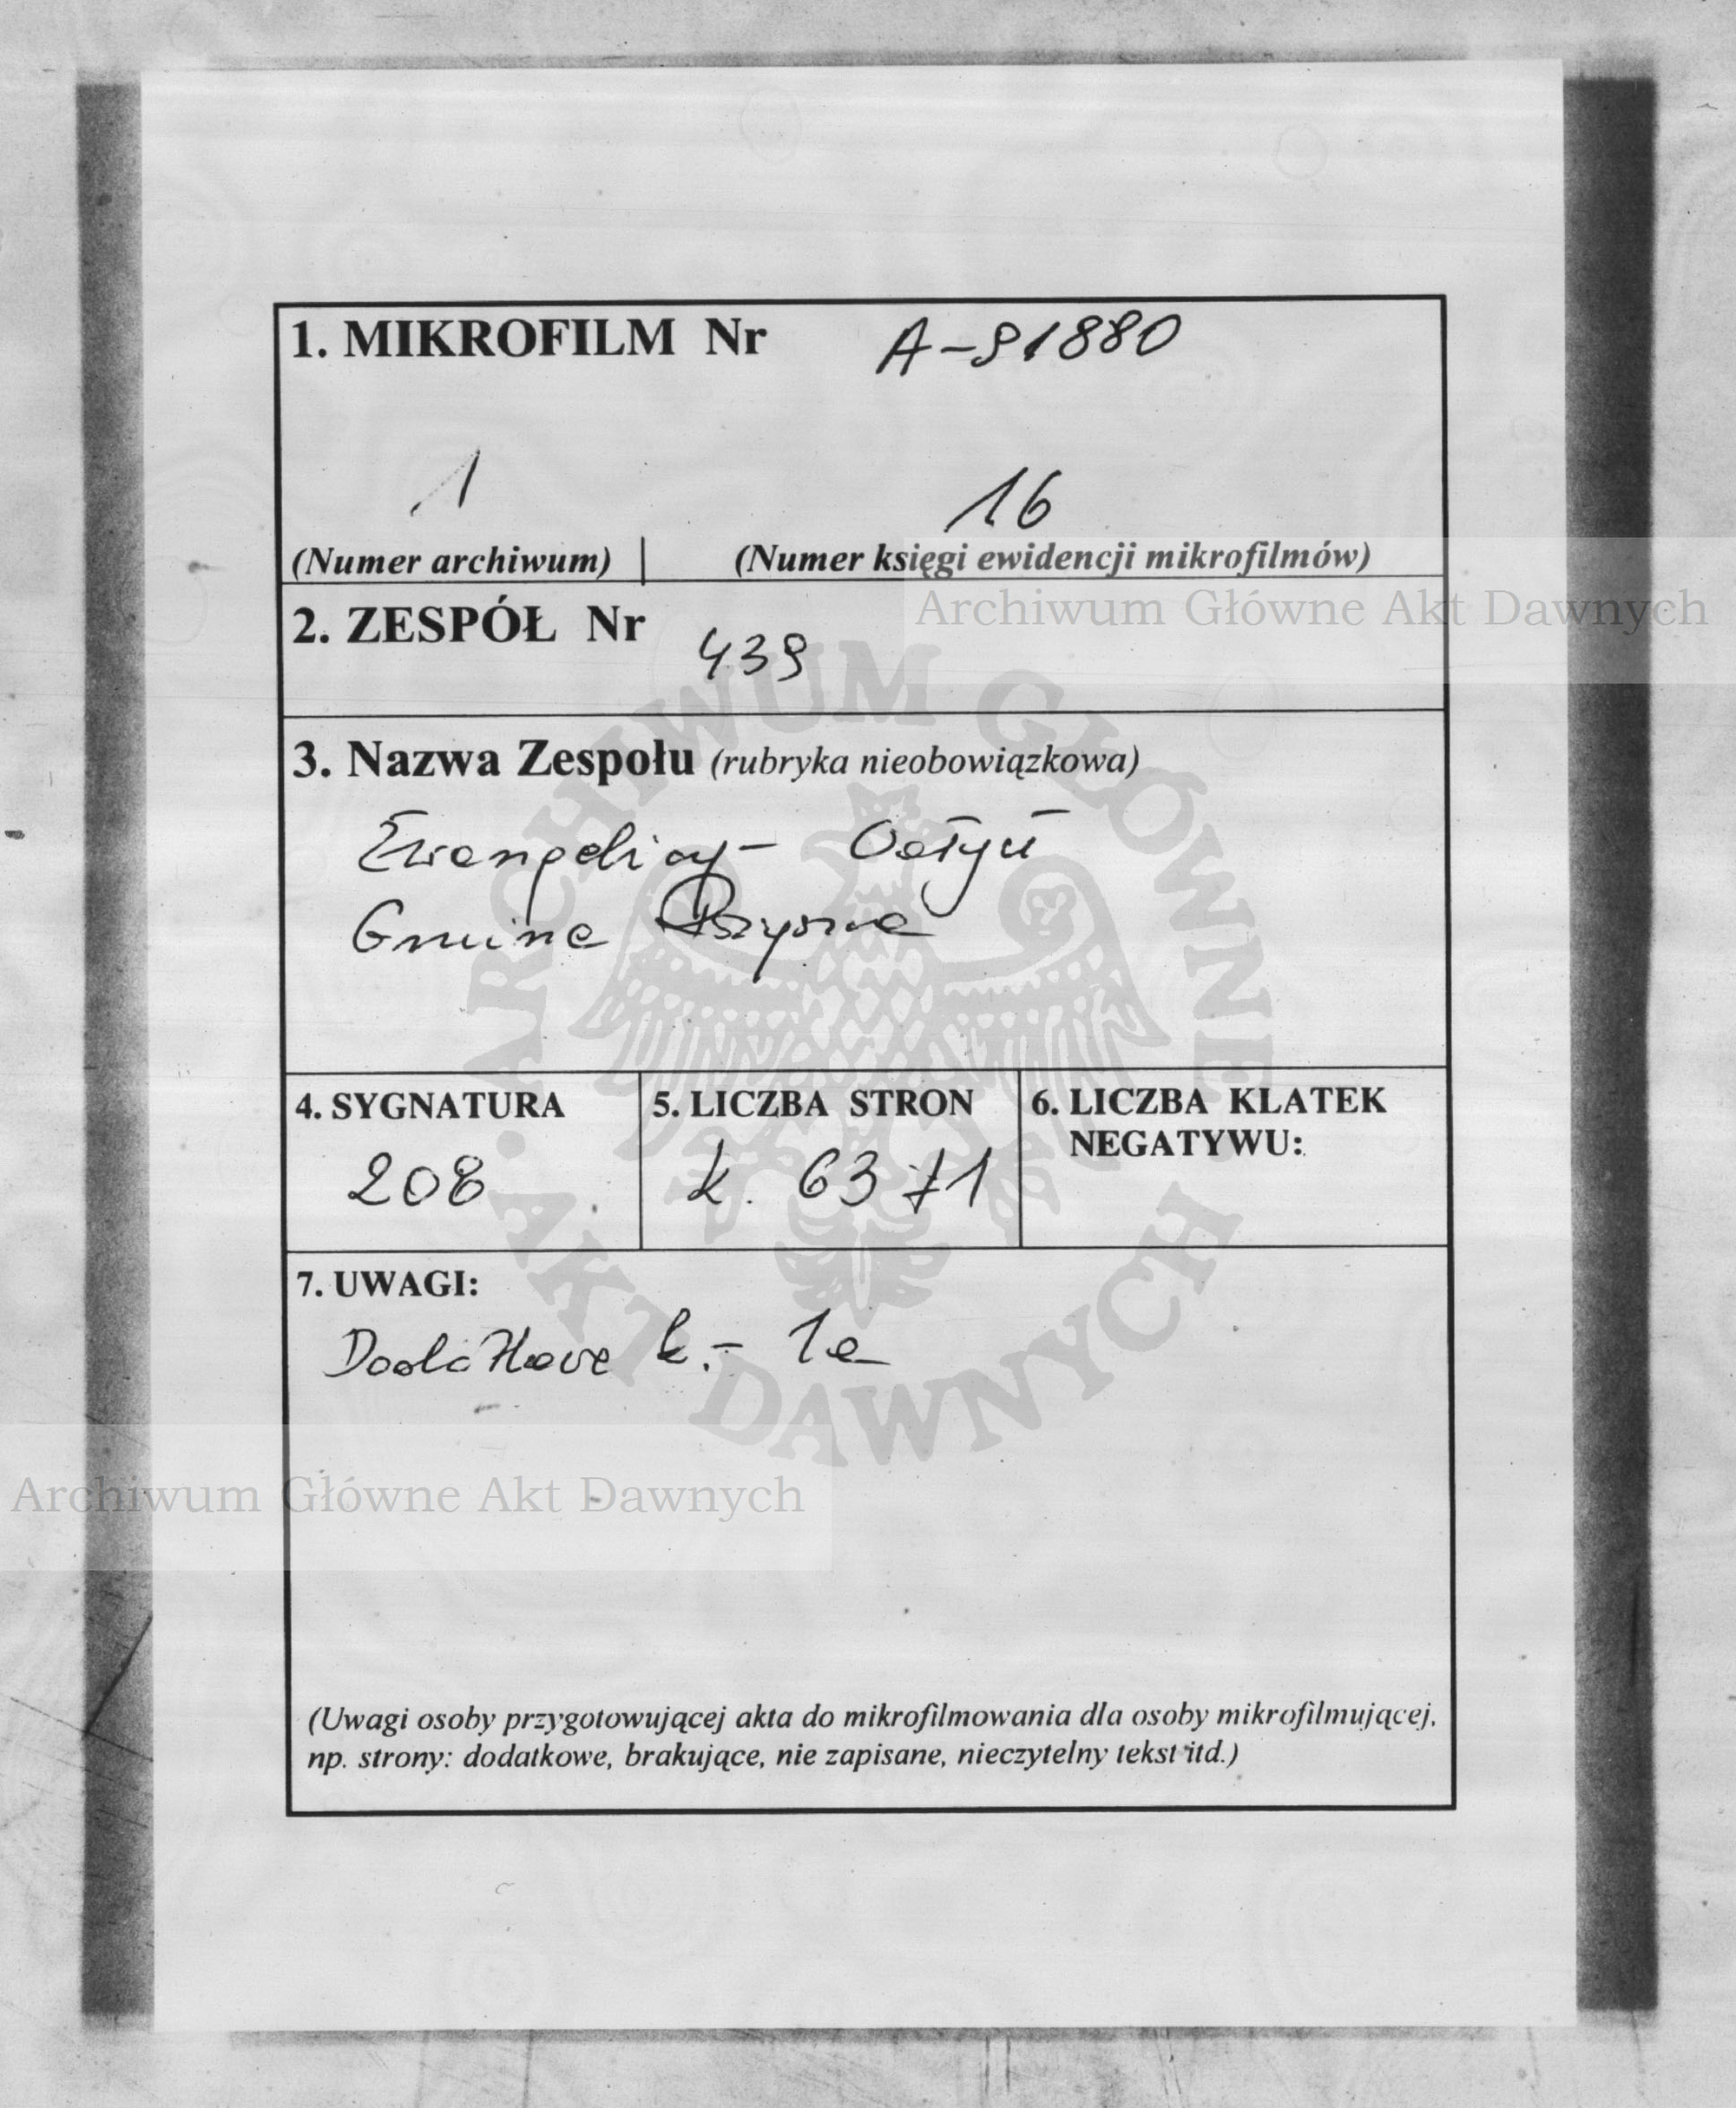 1. MIKROFILM Nr A-91880
1 16
(Numer archiwum) | (Numer księgi ewidencji mikrofilmów)
Archiwum Główne Akt Dawnych
2. ZESPÓŁ Nr 439
3. Nazwa Zespołu (rubryka nieobowiązkowa)
Ewangelicy - Wołyń
Gmina
4. SYGNATURA 5. LICZBA STRON 6. LICZBA KLATEK
NEGATYWU:
208 k. 63 +1
7. UWAGI:
Dodatkowe k. - 1a
ARCHIWUM GŁÓWNE · AKT DAWNYCH ·
Archiwum Główne Akt Dawnych
(Uwagi osoby przygotowującej akta do mikrofilmowania dla osoby mikrofilmującej,
np. strony: dodatkowe, brakujące, nie zapisane, nieczytelny tekst itd.)